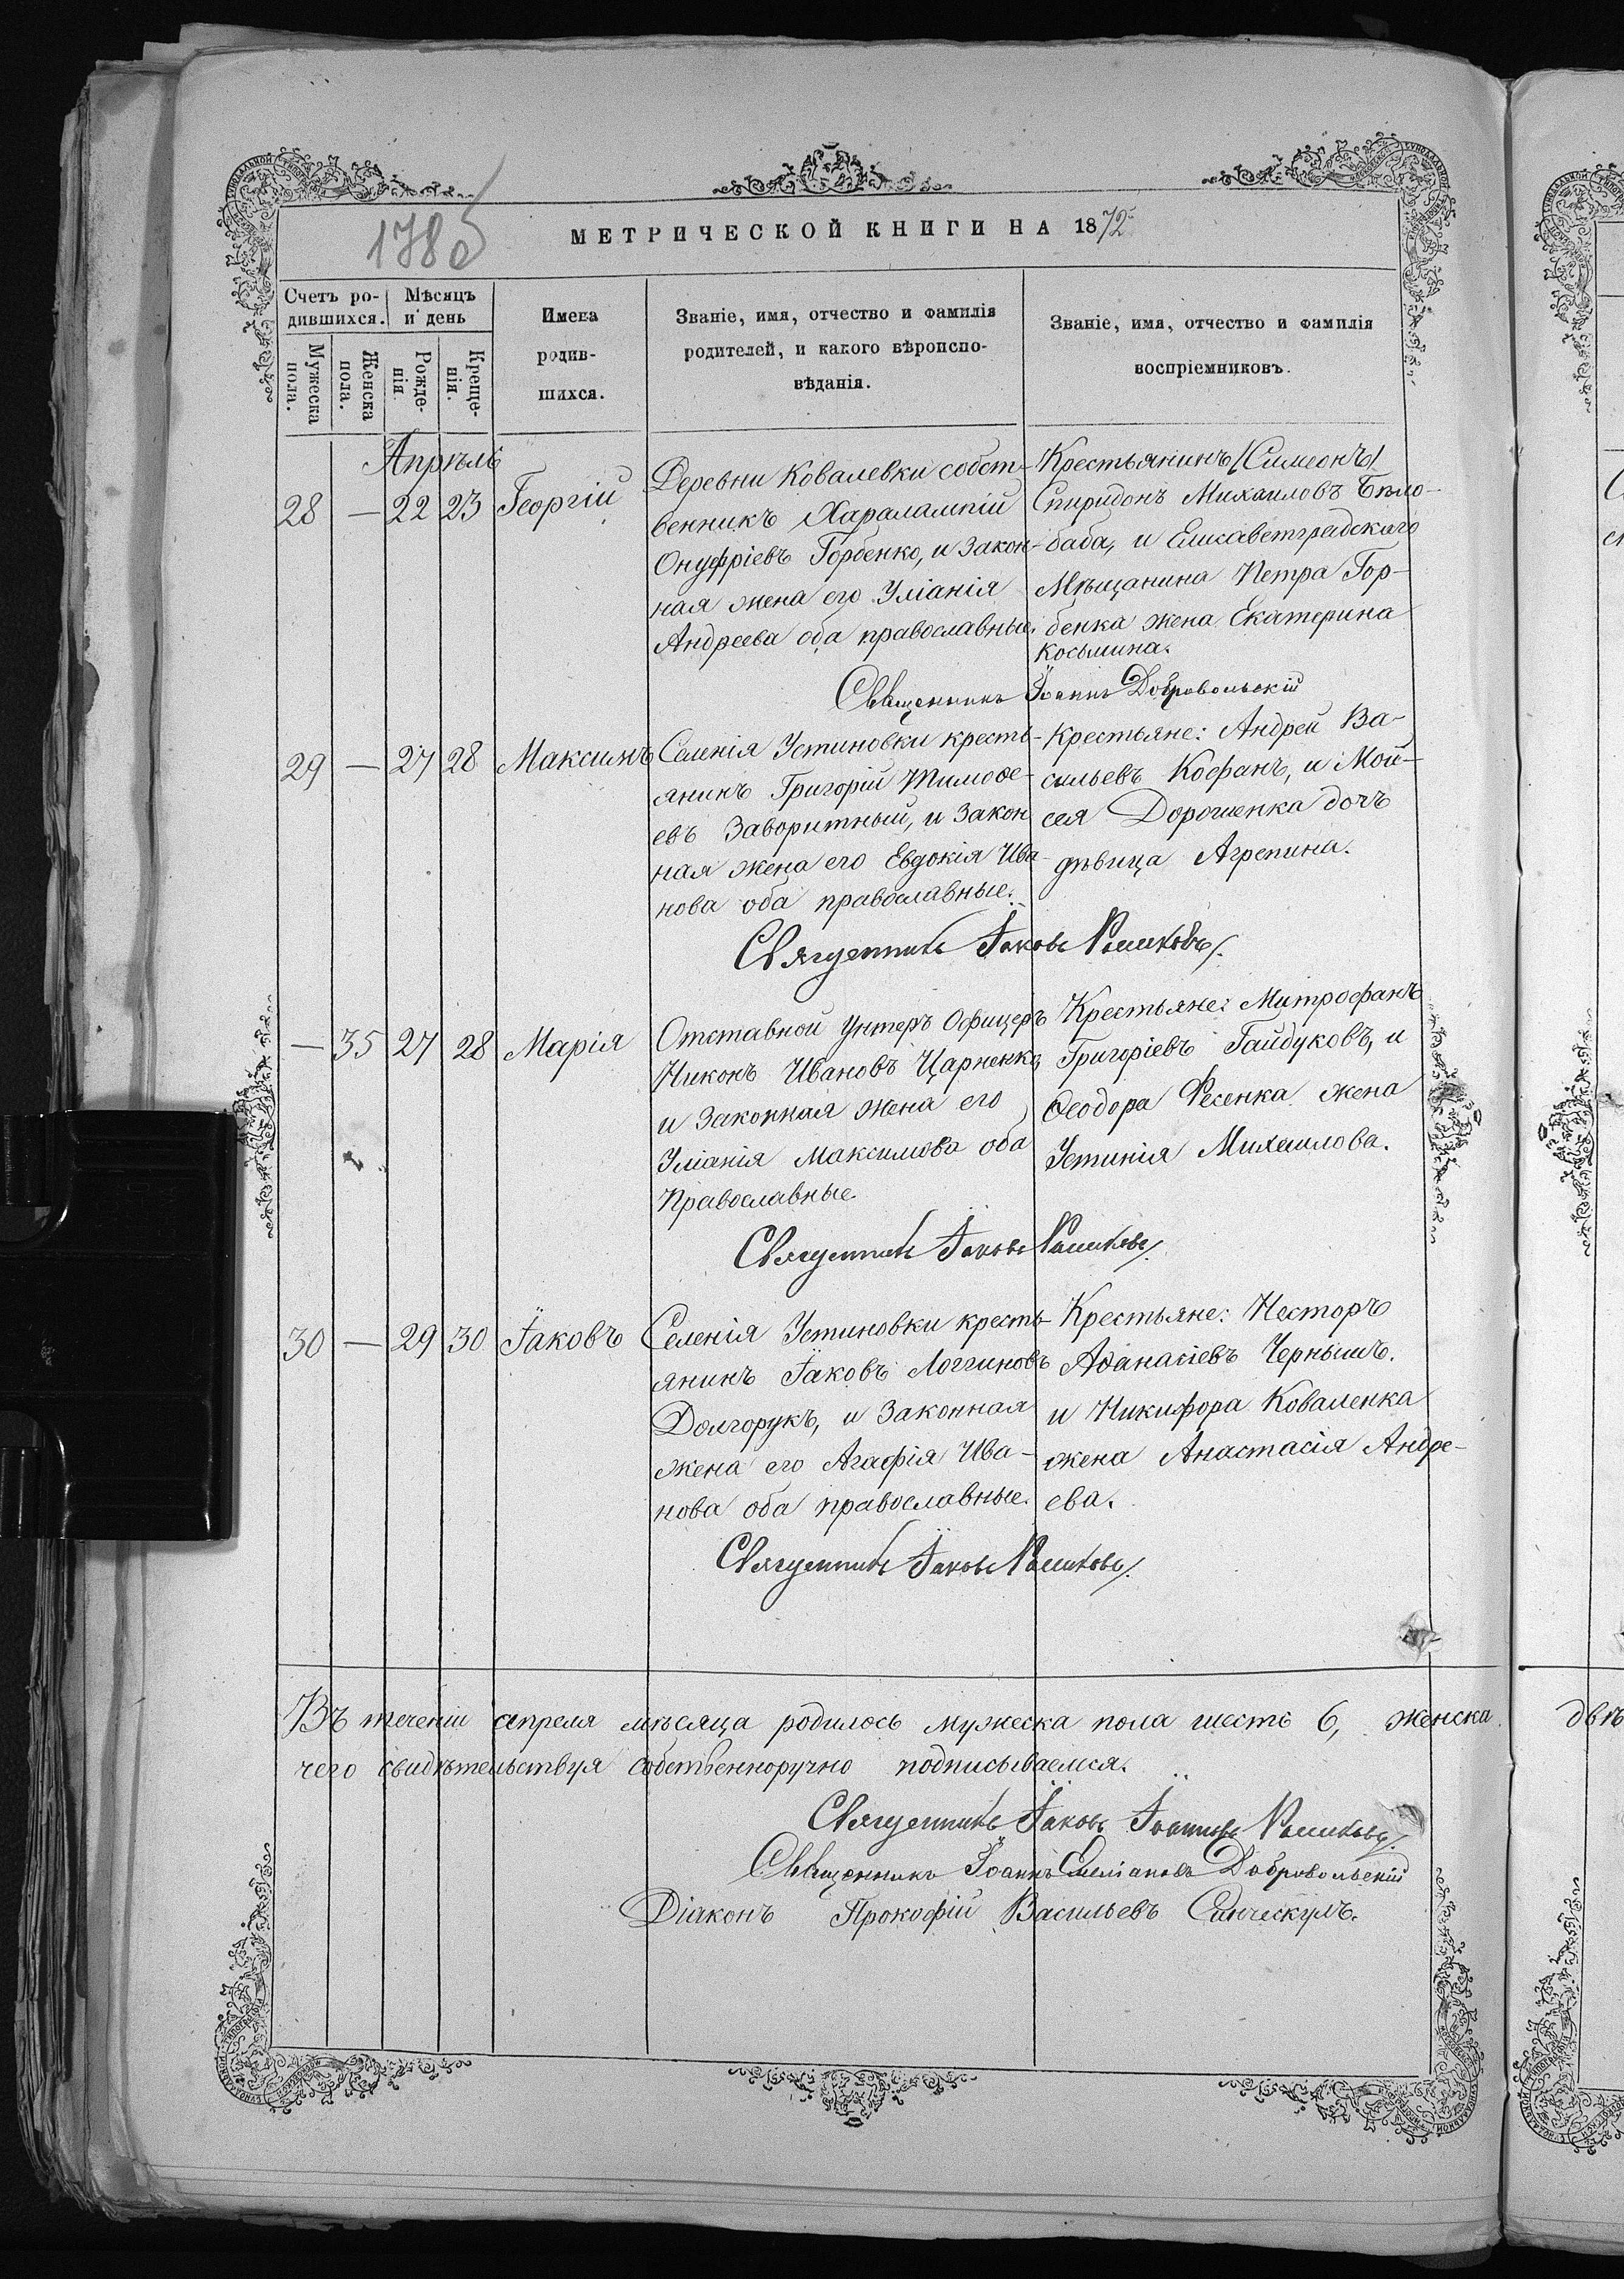 178 об
МЕТРИЧЕСКОЙ КНИГИ НА 1872
Счетъ ро-
дившихся.
Мѣсяцъ
и день
Мужеска
пола.
Женска
пола.
Рожде-
нія
Креще-
нія.
Имена
родив-
шихся.
Званіе, имя, отчество и фамилія
родителей, и какого вѣроиспо-
вѣданія.
Званіе, имя, отчество и фамилія
воспріемниковъ.
Апрѣль
28 — 22 23 Георгій
Деревни Ковалевки собст-
венникъ Харалампій
Онуфріевъ Горбенко, и закон-
ная жена его Уліанія
Андреева оба православные.
Крестьянинъ (Симеонъ)
Спиридонъ Михаиловъ Бѣло-
баба, и Елисаветградскаго
Мѣщанина Петра Гор-
бенка жена Екатерина
Косьмина.
Священникъ Іоаннъ Добровольскій
29 — 27 28 Максимъ
Селенія Устиновки кресть-
янинъ Григорій Тимоѳе-
евъ Заворитный, и закон
ная жена его Евдокія Ива-
нова оба православные.
Крестьяне: Андрей Ва-
сильевъ Кофанъ, и Мои-
сея Дорошенка дочь
дѣвица Агрепина.
Священникъ Іаковъ
— 35 27 28 Марія
Отставной Унтеръ Офицеръ
Никонъ Ивановъ Царненко,
и законная жена его
Уліанія Максимова оба
Православные.
Крестьяне: Митрофанъ
Григоріевъ Гайдуковъ, и
Ѳеодора Фесенка жена
Устинія Михаилова.
Священникъ Іаковъ
30 — 29 30 Іаковъ
Селенія Устиновки кресть-
янинъ Іаковъ Логгиновъ
Долгорукъ, и законная
жена его Агафія Ива-
нова оба православные.
Крестьяне: Несторъ
Аѳанасіевъ Чернышъ.
и Никифора Коваленка
жена Анастасія Андре-
ева.
Священникъ Іаковъ
Въ теченіи апреля мѣсяца родилось мужеска пола шесть 6, женска двѣ
чего свидѣтельствуя собственноручно подписываемся.
Священникъ Іаковъ Іоанновъ
Священникъ Іоаннъ Добровольскій
Діаконъ Прокофій Васильевъ